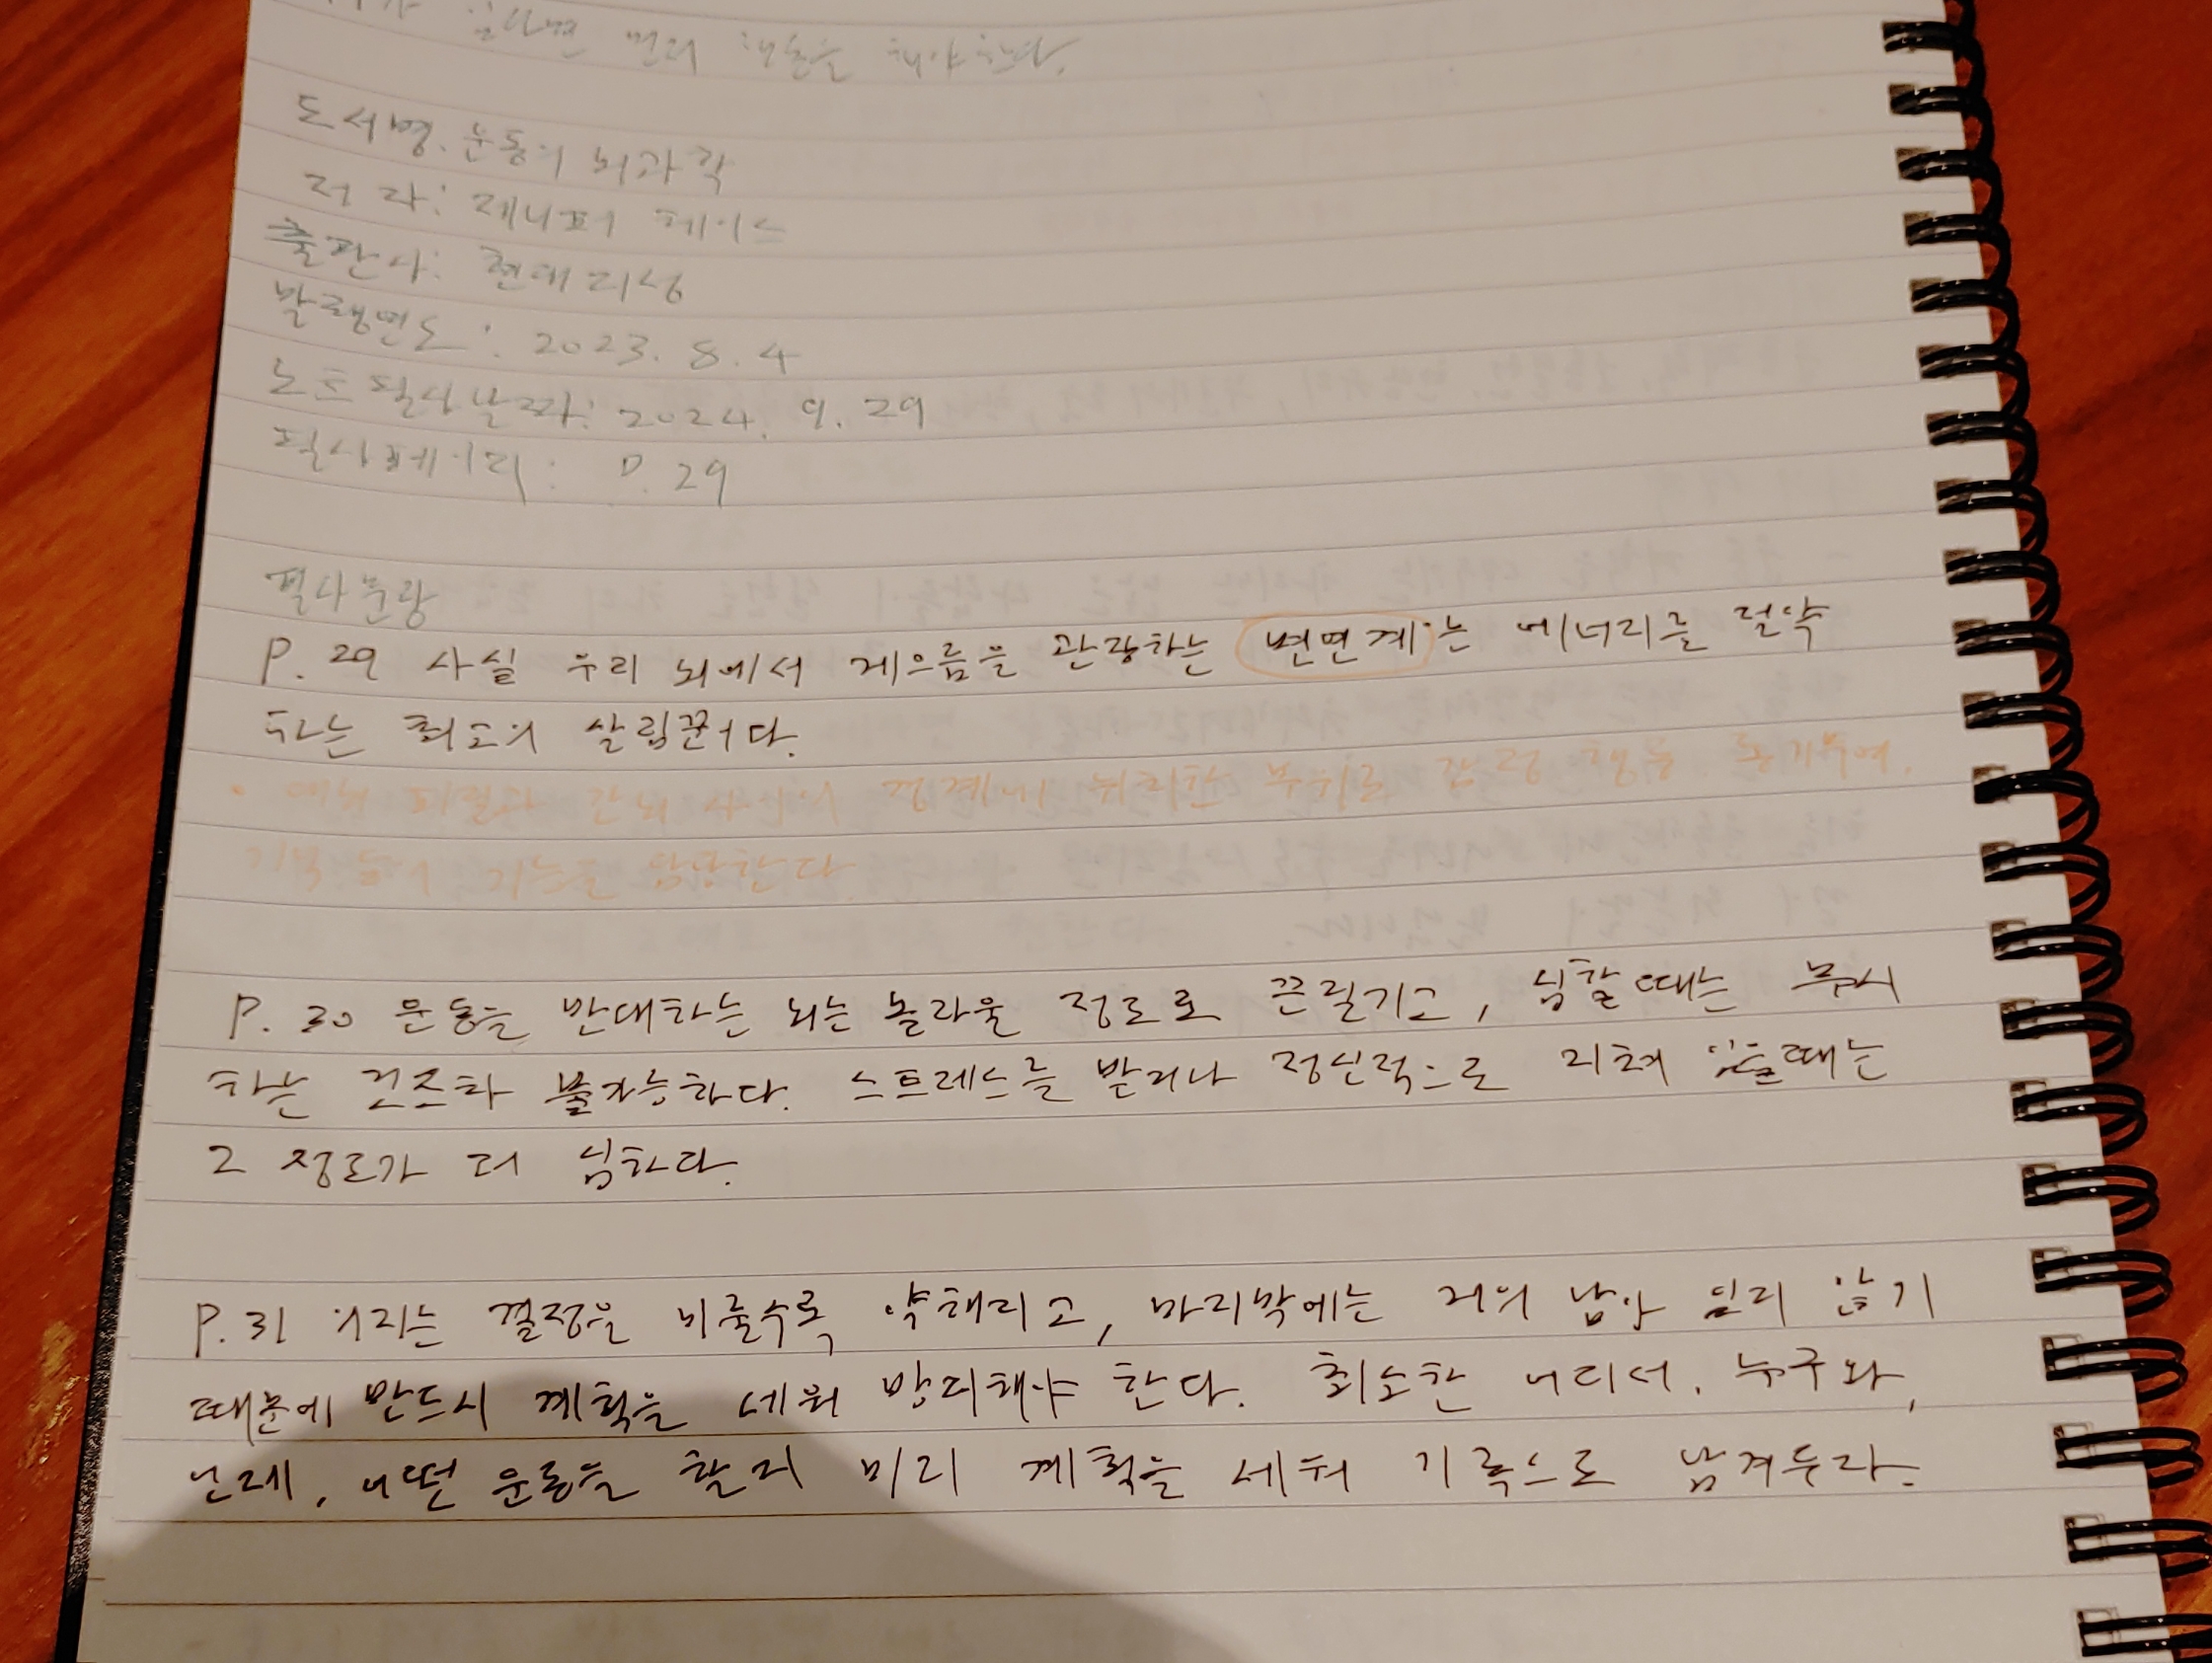 먼저 해야한다.
도서명. 운동의 뇌과학
저 자: 제니퍼 헤이스
출판사: 현대지성
발행연도: 2023. 8. 4
노트필사날짜: 2024. 9. 29
필사페이지: P. 29
필사문장
P. 29 사실 우리 뇌에서 게으름을 관장하는 변연계는 에너지를 절약
하는 최고의 살림꾼이다.
• 대뇌 피질과 간뇌 사이의 경계에 위치한 부위로 감정 행동 동기부여,
기억 등의 기능을 담당한다.
P. 30 운동을 반대하는 뇌는 놀라울 정도로 끈질기고, 심할때는 무시
하는 것조차 불가능하다. 스트레스를 받거나 정신적으로 지쳐 있을때는
그 정도가 더 심하다.
P. 31 의지는 결정을 미룰수록 약해지고, 마지막에는 거의 남아 있지 않기
때문에 반드시 계획을 세워 방지해야 한다. 최소한 어디서, 누구와,
언제, 어떤 운동을 할지 미리 계획을 세워 기록으로 남겨두라.